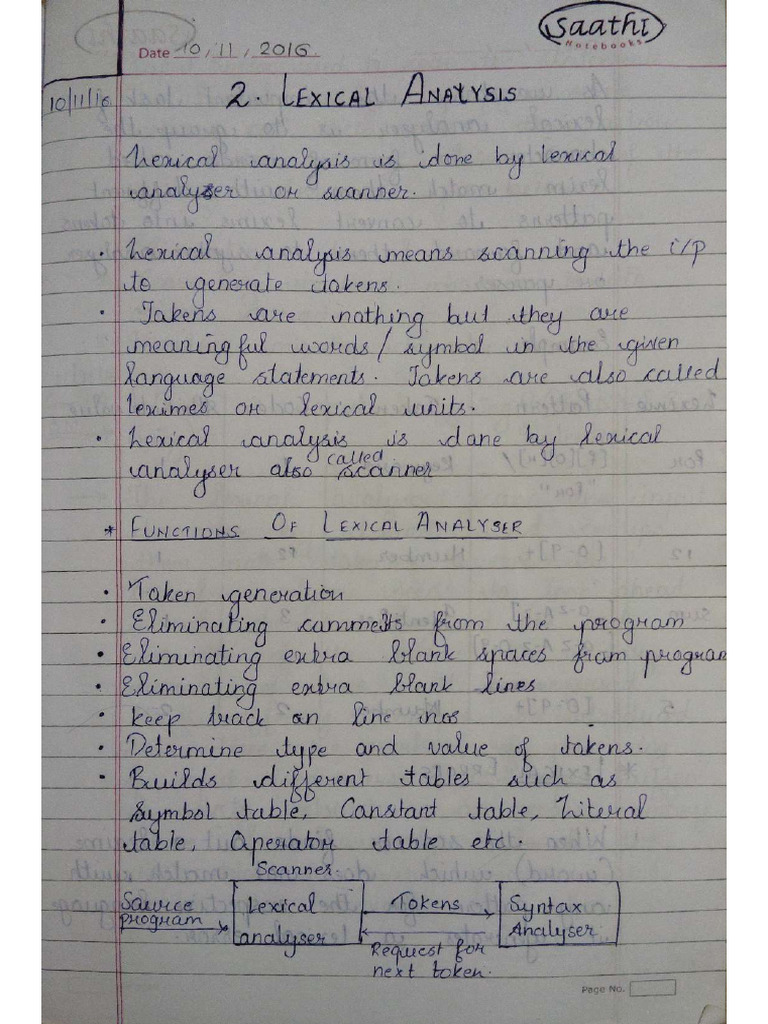 Saathi
Notebooks
Date 10/11/2016
10/11/16
2. LEXICAL ANALYSIS
Lexical analysis is done by lexical
analyser or scanner.
• Lexical analysis means scanning the i/p
to generate tokens.
• Tokens are nothing but they are
meaningful words/symbol in the given
language statements. Tokens are also called
leximes or lexical units.
• Lexical analysis is done by lexical
analyser also called scanner
* FUNCTIONS OF LEXICAL ANALYSER
• Token generation
• Eliminating comments from the program
• Eliminating extra blank spaces from program
• Eliminating extra blank lines
• keep track on line nos
• Determine type and value of tokens.
• Builds different tables such as
Symbol table, Constant table, Literal
table, Operator table etc.
Scanner
Source program
Lexical analyser
Tokens
Request for next token.
Syntax Analyser
Page No.